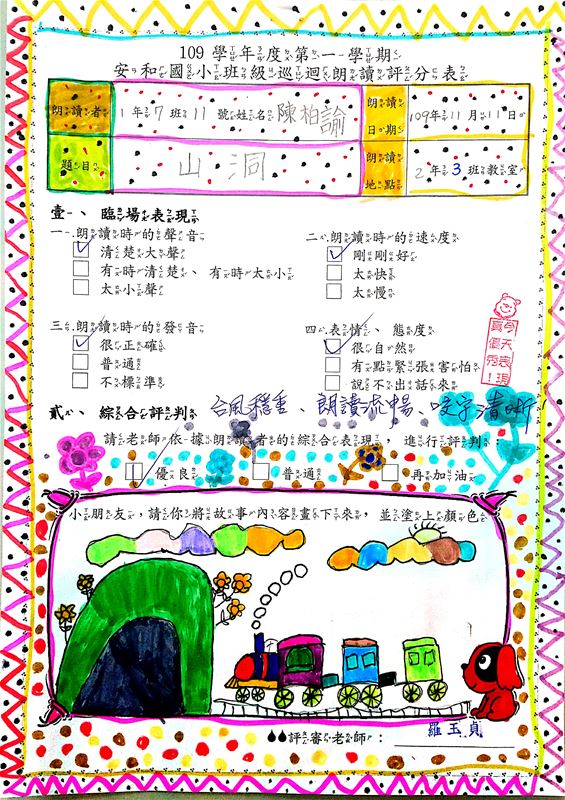 109學年度第一學期
安和國小班級巡迴朗讀評分表
朗讀者 1年7班11號姓名陳柏諭 朗讀日期 109年11月11日
題目 山洞 朗讀地點 2年3班教室
壹、臨場表現
一.朗讀時的聲音 二.朗讀時的速度
清楚大聲 剛剛好
有時清楚、有時太小 太快
太小聲 太慢
三.朗讀時的發音 四.表情、態度
很正確 很自然
普通 有點緊張害怕
不標準 說不出話來
今天表現
真優秀!
貳、綜合評判 台風穩重、朗讀流暢、咬字清晰
請老師依據朗讀者的綜合表現,進行評判:
優良 普通 再加油
小朋友,請你將故事內容畫下來,並塗上顏色
評審老師: 羅玉貞